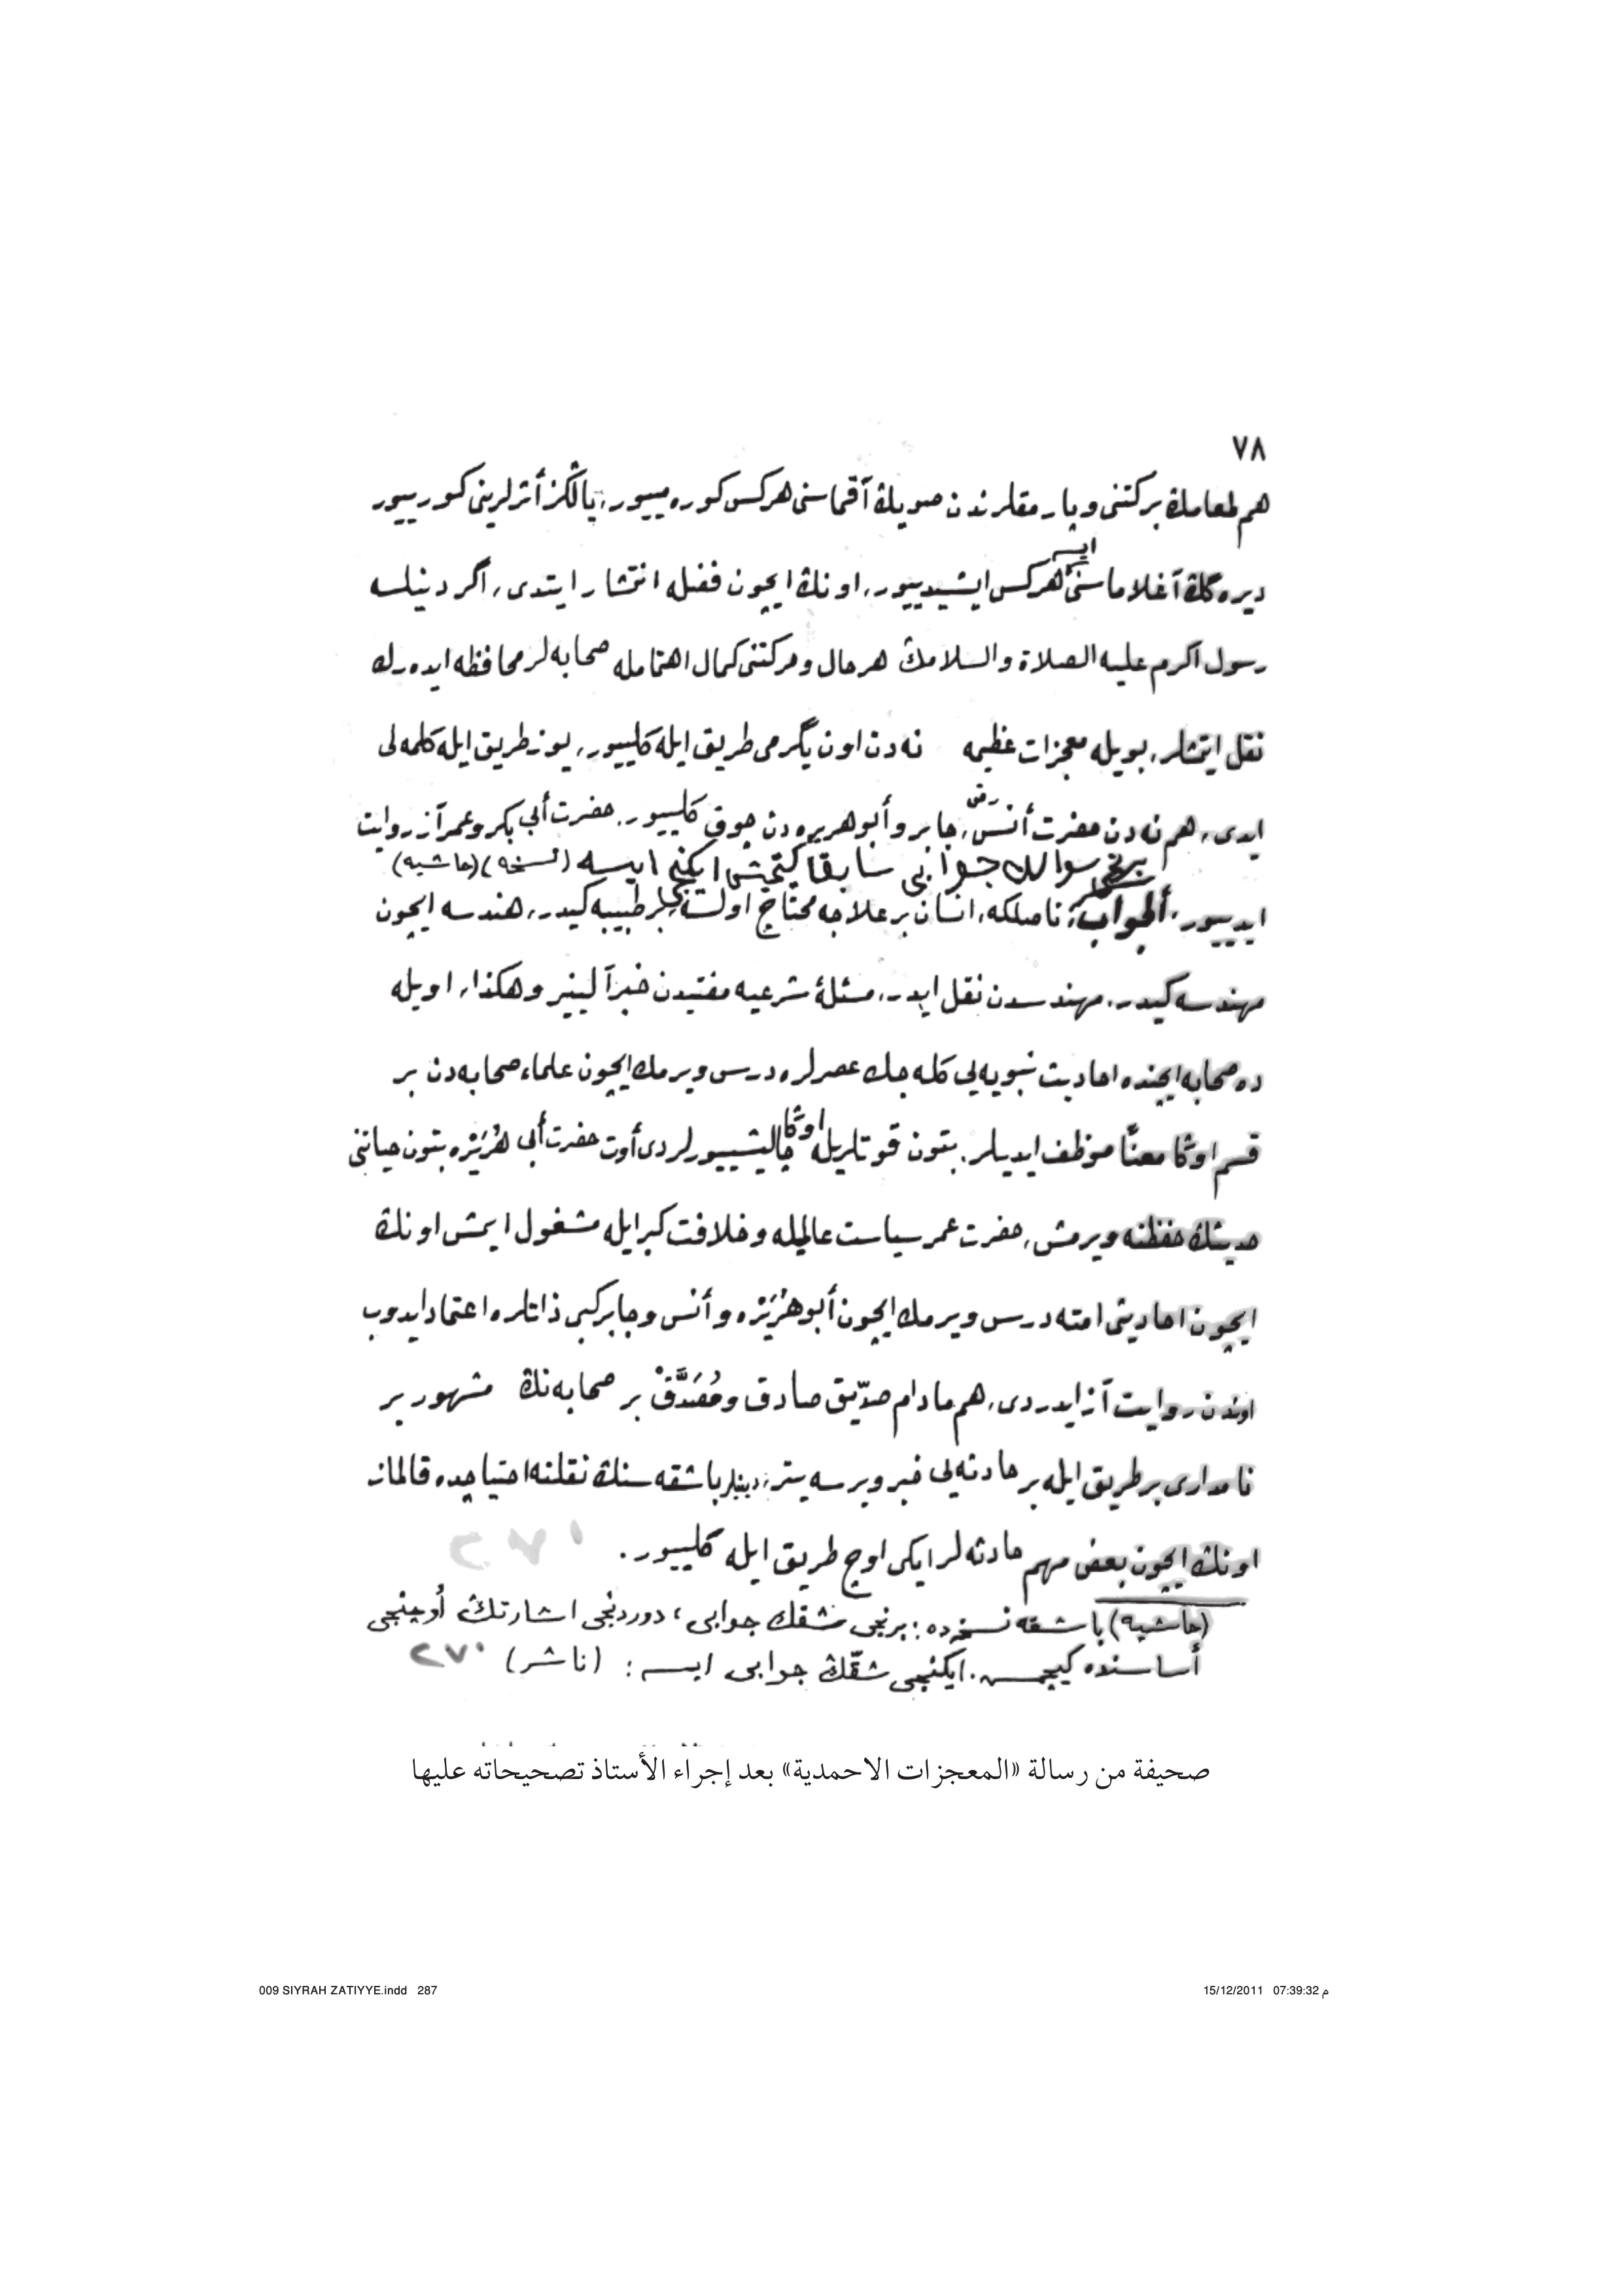 ٧٨
هم طعامڭ بركتنى و پارمقلرندن صويڭ آقماسنى هركس كوره مييور، يالڭز أثرلرينى كورييور
ايسه
ديره گڭ آغلاماسنى هركس ايشيدييور، اونڭ ايچون فضله انتشار ايتدى، اگر دينلسه
رسول اكرم عليه الصلاة والسلامڭ هر حال و حركتنى كمال اهتمامله صحابه لر محافظه ايده رك
نقل ايتمشلر، بويله معجزات عظيمه نه دن اون يگرمى طريق ايله كلييور، يوز طريق ايله كلمه لى
ايدى، هم نه دن حضرت أنس رض، جابر و أبو هريره دن چوق كلييور. حضرت أبى بكر و عمر آز روايت
برنجى سوالك جوابى سابقا كچمش ايكنجى ايسه (نسخه) (حاشيه)
ايدييور. ألجواب: ناصلكه، انسان بر علاجه محتاج اولسه بر طبيبه كيدر، هندسه ايچون
مهندسه كيدر. مهندسدن نقل ايدر.، مسئلۀ شرعيه مفتيدن خبر آلينير وهكذا، اويله
ده صحابه ايچنده احاديث نبويه يى كله جك عصرلره درس ويرمك ايچون علماء صحابه دن بر
قسم اوڭا معنًا موظف ايديلر. بتون قوتلريله اوڭا چاليشييورلردى أوت حضرت أبى هُرَيْرَه بتون حياتنى
حديثڭ حفظنه ويرمش، حضرت عمر سياست عالمله و خلافت كبرا ايله مشغول ايمش اونڭ
ايچون احاديثى امته درس ويرمك ايچون أبو هُرَيْرَه و أنس و جابر كبى ذاتلره اعتماد ايدوب
اوندن روايت آز ايدردى، هم مادام صدّيق صادق و مُصَدَّقْ بر صحابه نڭ مشهور بر
نامدارى بر طريق ايله بر حادثه يى خبر ويرسه يتر، دينلر باشقه سنڭ نقلنه احتياجده قالماز
اونڭ ايچون بعض مهم حادثه لر ايكى اوچ طريق ايله كلييور.
(حاشيه) باشقه نسخه ده: برنجى شقك جوابى، دوردنجى اشارتڭ أوچنجى
أساسنده كيچمش. ايكنجى شقّڭ جوابى ايسه: (ناشر)
صحيفة من رسالة «المعجزات الاحمدية» بعد إجراء الأستاذ تصحيحاته عليها
009 SIYRAH ZATIYYE.indd 287
15/12/2011 07:39:32 م